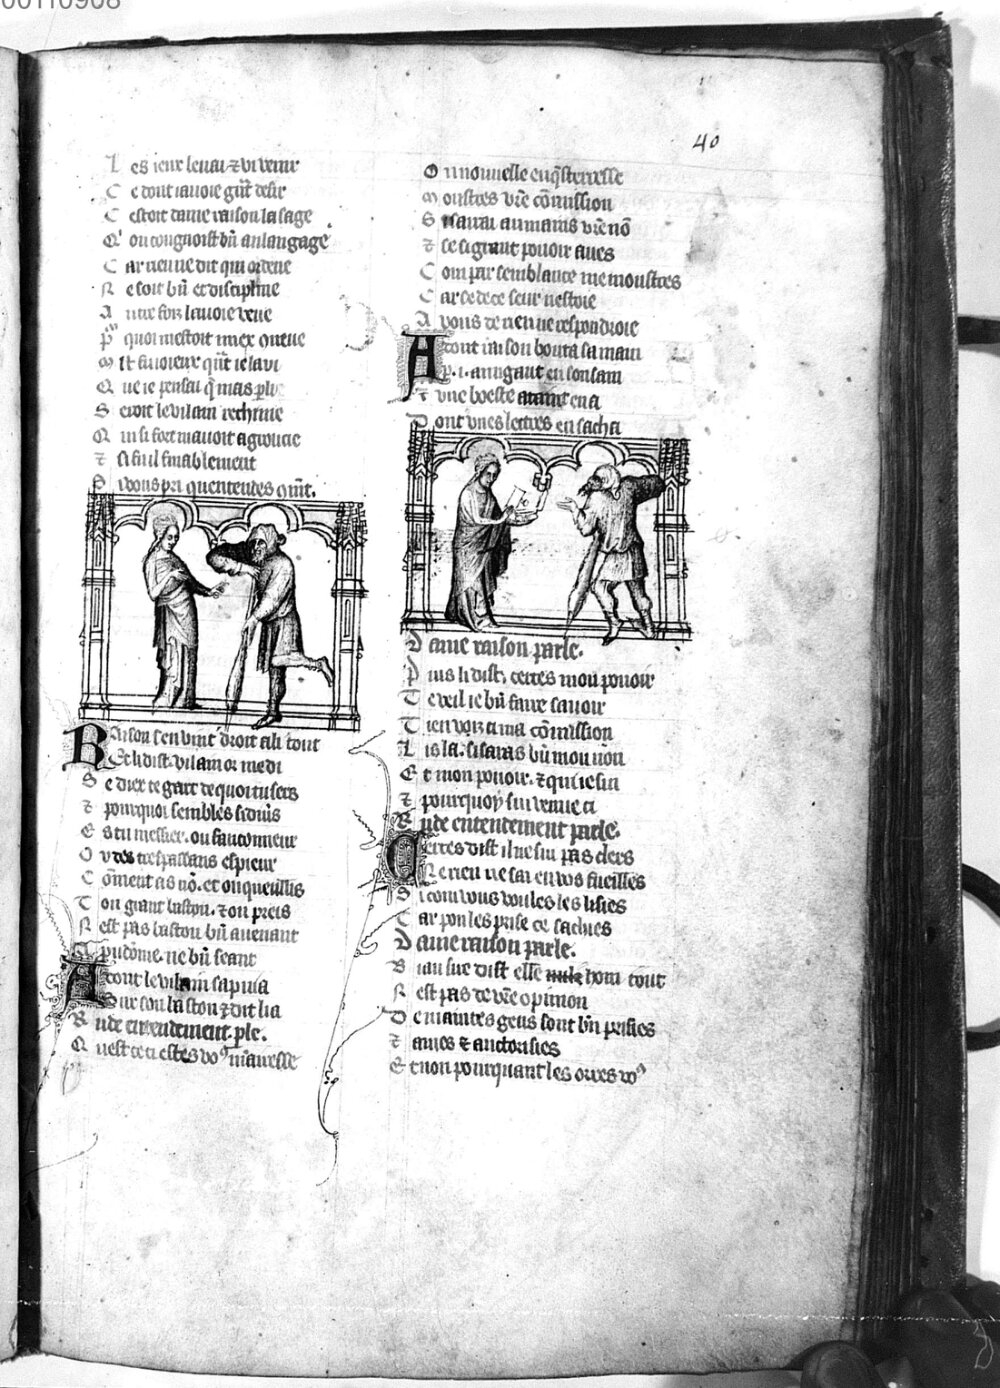 00110908
40
Les ieux leuai ⁊ vi venir
Ce dont iauoie gñt desir
Cestoit dame raison la sage
Q' on congnoist bñ an langage
Car rien ne dit qui ordene
Ne soit bñ et discipline
Autre fois lauoie veue
quoi mestoit miex
ioieux qñt ie la vi
Que ie pensai q̃ mas
Seroit le vilain rechine
Qui si fort mauoit agroucie
⁊ si fu il finablement
vous pri quentendes cõmt.
Raison sen vint droit a li tout
Et li dist. vilain or me di
Se diex te gart de quoi tu sers
⁊ pourquoi sembles si diuers
Es tu messier. ou fauconneur
Ou des trespassans espieur
Cõment as nõ. et ou queullis
Ton grant baston. ⁊ ou preis
Nest pas baston bñ auenant
A preudõme. ne bñ seant
Adont le vilain sapuia
Sur son baston ⁊ dit lia
Rude entendement. ple.
Quest ce ci estes vo⁹ mairesse
Ou nouuelle enq̃sterresse
Monstres vr̃e cõmission
Si sauai au mains vr̃e nõ
⁊ se si grant pouoir aues
Com par semblance me monstres
Car se de ce seur nestoie
A vous de rien ne respondroie
Adont raison bouta sa main
Ap. i. arrugant en son sain
Et vne boeste en a
Dont vnes lettres en sacha
Dame raison parle.
Puis li dist, certes mon pouoir
Te veil ie bñ faire sauoir
Tien voiz ci ma cõmission
Lis la. si saras bñ mon non
Et mon pouoir. ⁊ qui ie sui
⁊ pourquoy sui venue ci
Rude entendement parle.
Certes dist il ne sui pas clers
Ne rien ne sai en vos fueilles
Si com vous voules les lisies
Car pou les prise ce sachies
Dame raison parle.
Biau sire dist elle nulz hom tout
Nest pas de vr̃e opinion
De maintes gens sont bñ prisies
⁊ ames ⁊ auctorisies
Et non pourquant les orres vo⁹